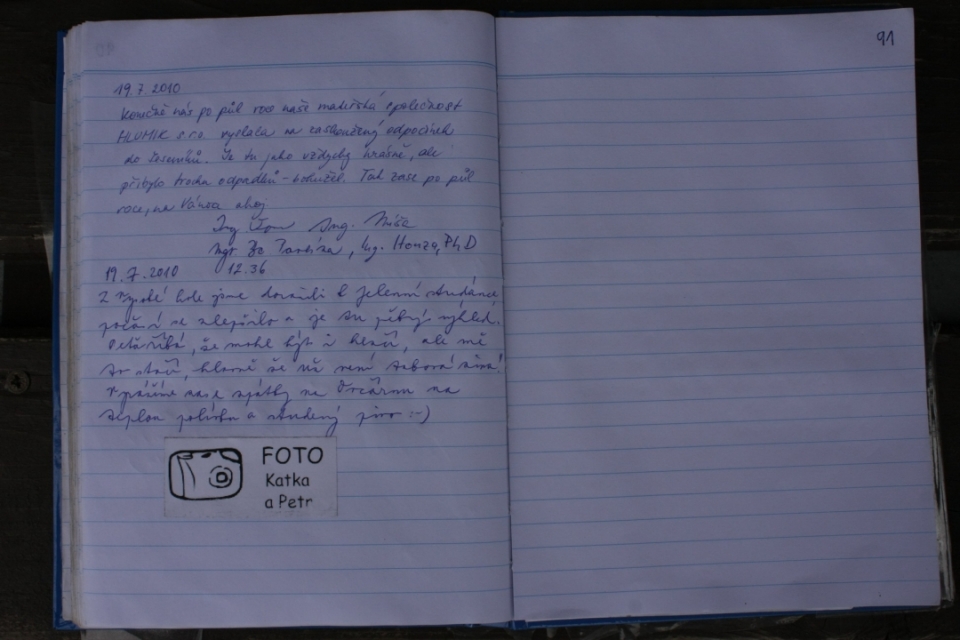 91
19.7 2010
Konečně nás po půl roce naše mateřská společnost
HLUMIK s.r.o. vyslala na zasloužený odpočinek
do Jeseníků. Je tu jako vždycky krásně, ale
přibylo trocha odpadků - bohužel. Tak zase po půl
roce, na Vánoce ahoj
Ing. Ing.
Mgr , Ing. Honza, PhD
19.7.2010 12.36
Z Vysoké hole jsme dorazili k Jelenní studánce,
počasí se zlepšilo a je tu pěkný výhled.
že mohl být i hezčí, ale mě
to stačí, hlavně že už není taková zima!
zase zpátky na Ovčárnu na
teplou polívku a studený pivo :-)
FOTO
Katka
a Petr